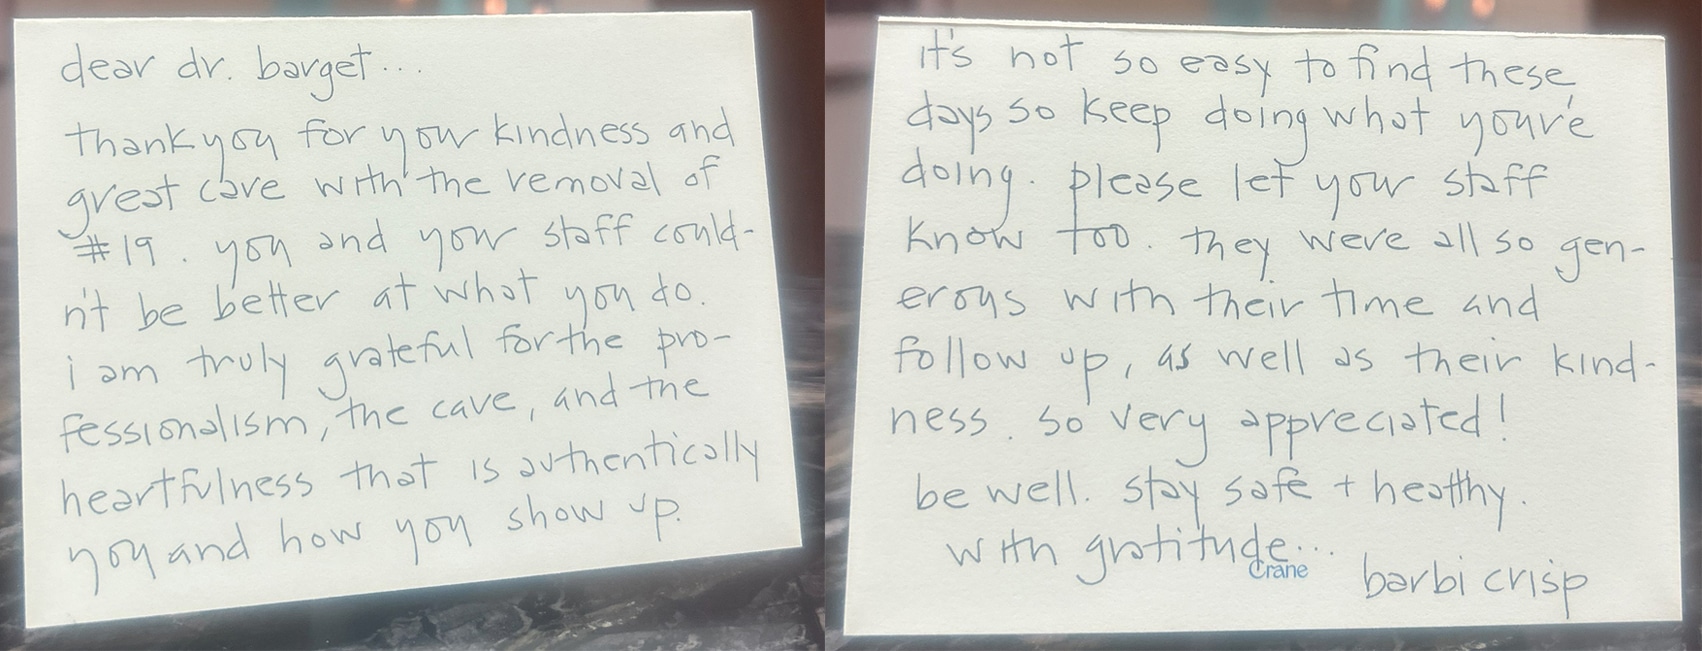 dear dr. barget...
thank you for your kindness and
great care with the removal of
#19. you and your staff could-
n't be better at what you do.
i am truly grateful for the pro-
fessionalism, the care, and the
heartfulness that is authentically
you and how you show up.
it's not so easy to find these
days so keep doing what you're
doing. please let your staff
know too. they were all so gen-
erous with their time and
follow up, as well as their kind-
ness. so very appreciated!
be well. stay safe + healthy.
with gratitude...
Crane
barbi crisp